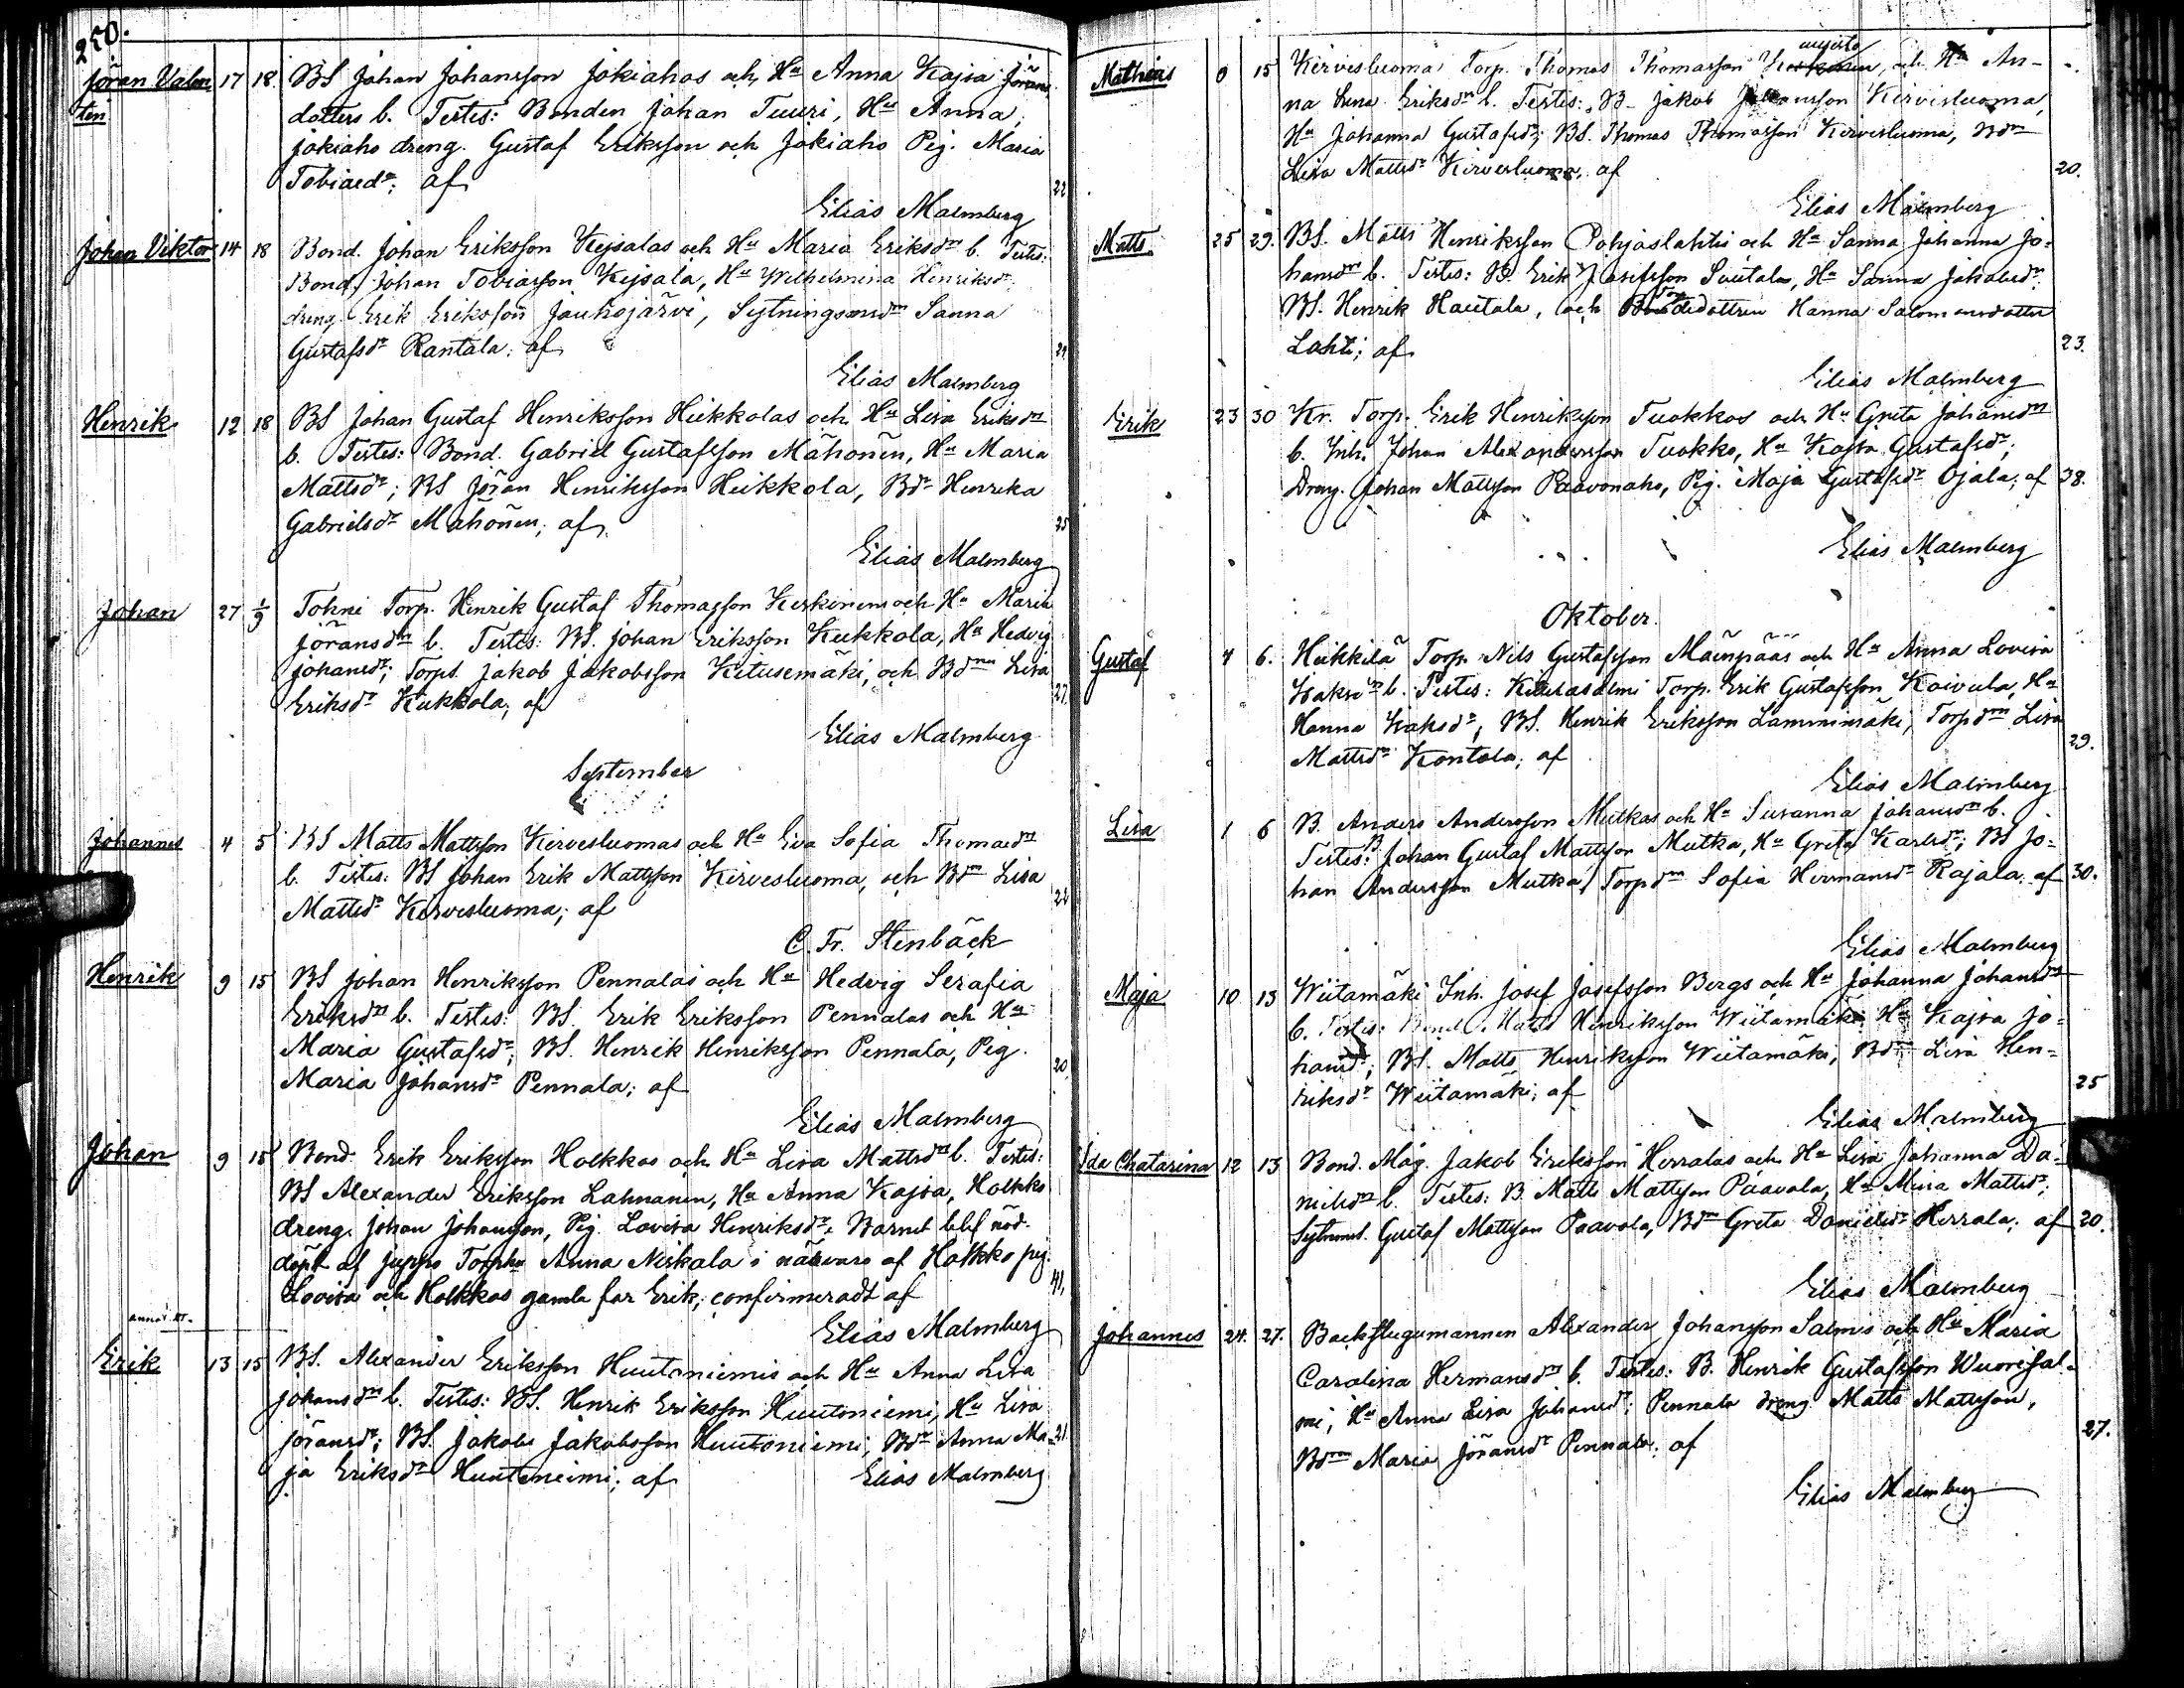 250.
Jöran Valen 17 18. BS Johan Johansson Jokiahos och Hu Anna Kajsa Jörans
tin dotters b. Testes: Bonden Johan Tuuri, Hu Anna,
Jokiaho dreng. Gustaf Eriksson och Jokiaho Pig. Maria
Tobiaedr; af 22
Elias Malmberg
Johan Viktor 14 18 Bond. Johan Eriksson Kejsalas och Hu Maria Eriksdrs b. Testes:
Bond. Johan Tobiasson Kejsala, Hu Wilhelmina Henriksdr.
dreng Erik Eriksson Jauhojärvi, Sanna
Gustafsdr Rantala; af 24
Elias Malmberg
Henrik 12 18 BS Johan Gustaf Henriksson Heikkolas och Hu Lisa Eriksdrs
b. Testes: Bond. Gabriel Gustafsson Mähönen, Hu Maria
Mattsdr; BS Jöran Henriksson Heikkola, Bdr Henrika
Gabrielsdr Mahönen; af 25
Elias Malmberg
Johan 27 1/9 Tohni Torp. Henrik Gustaf Thomasson Keskinens och Hu Maria
Jöransdrs b. Testes: BS. Johan Eriksson Kukkola, Hu Hedvig
Johansdr; Torps. Jakob Jakobsson Kitusemäki, och Bdrn Lisa
Eriksdr Kukkola; af 27.
Elias Malmberg
September
Johannes 4 5 BS Matts Mattsson Kirvesluomas och Hu Eva Sofia Thomasdrs
b. Testes: BS Johan Erik Mattsson Kirvesluoma, och Bdrn Lisa
Mattsdr Kirvesluoma; af 22
C. Fr. Stenbäck
Henrik 9 15 BS Johan Henriksson Pennalas och Hu Hedvig Serafia
Eriksdrs b. Testes: BS. Erik Eriksson Pennalas och Hu
Maria Gustafsdr; BS. Henrik Henriksson Pennala, Pig.
Maria Johansdr Pennala; af 20
Elias Malmberg
Johan 9 15 Bond. Erik Eriksson Holkkos och Hu Lisa Mattsdrs b. Testes:
BS Alexander Eriksson Lahnanen, Hu Anna Kajsa, Holkko
dreng. Johan Johansson, Pig. Lovisa Henriksdr; Barnet blef nöd-
döpt af Juppo Torphu Anna Niskala i närvaro af Holkko pig.
Lovisa och Holkkos gamla far Erik; confirmeradt af 41,
Elias Malmberg
Erik 13 15 BS. Alexander Eriksson Huutoniemis och Hu Anna Lisa
Johansdrs b. Testes: BS. Henrik Eriksson Huutoniemi, Hu Lisa
Jöransdr; BS. Jakob Jakobsson Huutoniemi, Bdr Anna Ma- 21.
ja Eriksdr Huutoniemi; af Elias Malmberg
Mathias 0 15 Kirvesluoma Torp. Thomas Thomasson och Hu An-
na Lena Eriksdrs b. Testes: B. Jakob Johansson Kirvesluoma,
Hu Johanna Gustafsdr; BS. Thomas Thomasson Kirvesluoma, Bdrn
Lisa Mattsdr Kirvesluoma, af 20.
Elias Malmberg
Matts 25 29. BS. Matts Henriksson Pohjaslahtis och Hu Sanna Johanna Jo-
hansdrs b. Testes: B. Erik Josefsson Sautala, Hu Sanna Jakobsdr
BS. Henrik Hautala, och Hanna Salomonsdotter
Lahti; af 23.
Elias Malmberg
Erik 23 30 Kr. Torp. Erik Henriksson Tuokkos och Hu Greta Johansdrs
b. Inh. Johan Alexandersson Tuokko, Hu Kajsa Gustafsdr;
Dreng. Johan Mattsson Paavonaho, Pig. Maja Gustafsdr Ojala; af 38.
Elias Malmberg
Oktober.
Gustaf 4 6. Heikkilä Torp. Nils Gustafsson Mäenpääs och Hu Anna Lovisa
Isaksdrs b. Testes: Torp. Erik Gustafsson Koivula, Hu
Hanna Isaksdr; BS. Henrik Eriksson Lamminmäki, Torpdrn Lisa
Mattsdr Kontola; af 29.
Elias Malmberg
Lisa 1 6 B. Anders Andersson Mutkas och Hu Susanna Johansdrs b.
Testes: B Johan Gustaf Mattsson Mutka, Hu Greta Karlsdr; BS Jo-
han Andersson Mutka, Torpdrn Sofia Hermansdr Rajala; af 30.
Elias Malmberg
Maja 10 13 Wiitamäki Inh. Josef Josefsson Bergs och Hu Johanna Johansdrs
b. Testes: Bond. Matts Henriksson Wiitamäki, Hu Kajsa Jo-
hansdr; BS. Matts Henriksson Wiitamäki, Bdrn Lisa Hen-
riksdr Wiitamäki; af 25
Elias Malmberg
Ida Chatarina 12 13 Bond. Måg. Jakob Eriksson Herralas och Hu Lisa Johanna Da-
nielsdrs b. Testes: B. Matts Mattsson Paavola, Hu Maria Mattsdr;
Gustaf Mattsson Paavola, Bdrn Greta Danielsdr Herrala; af 20.
Elias Malmberg
Johannes 24. 27. Backstugumannen Alexander Johansson Salmis och Hu Maria
Carolina Hermansdrs b. Testes: B. Henrik Gustafsson Wuorisal-
mi, Hu Anna Lisa Johansdr; Pennala dreng Matts Mattsson,
Bdrn Maria Jöransdr Pennala; af 27.
Elias Malmberg